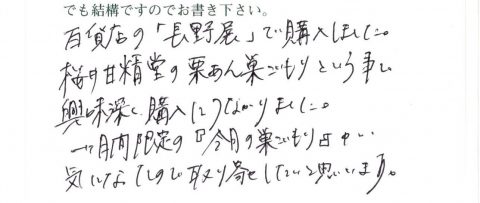 でも結構ですのでお書き下さい。
百貨店の「長野展」で購入しました。
桜井甘精堂の栗あん巣ごもりという事で
興味深く、購入につながりました。
一ヶ月間限定の『今月の巣ごもり』が、
気になったので取り寄せしたいと思います。